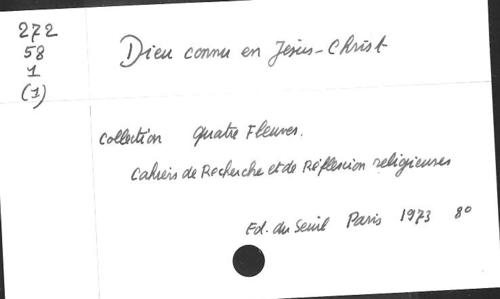 272
58
1
(1)
Dieu connu en Jésus-Christ
Collection Quatre Fleuves.
Cahiers de Recherche et de Réflexion religieuses
Ed. du Seuil Paris 1973 8°